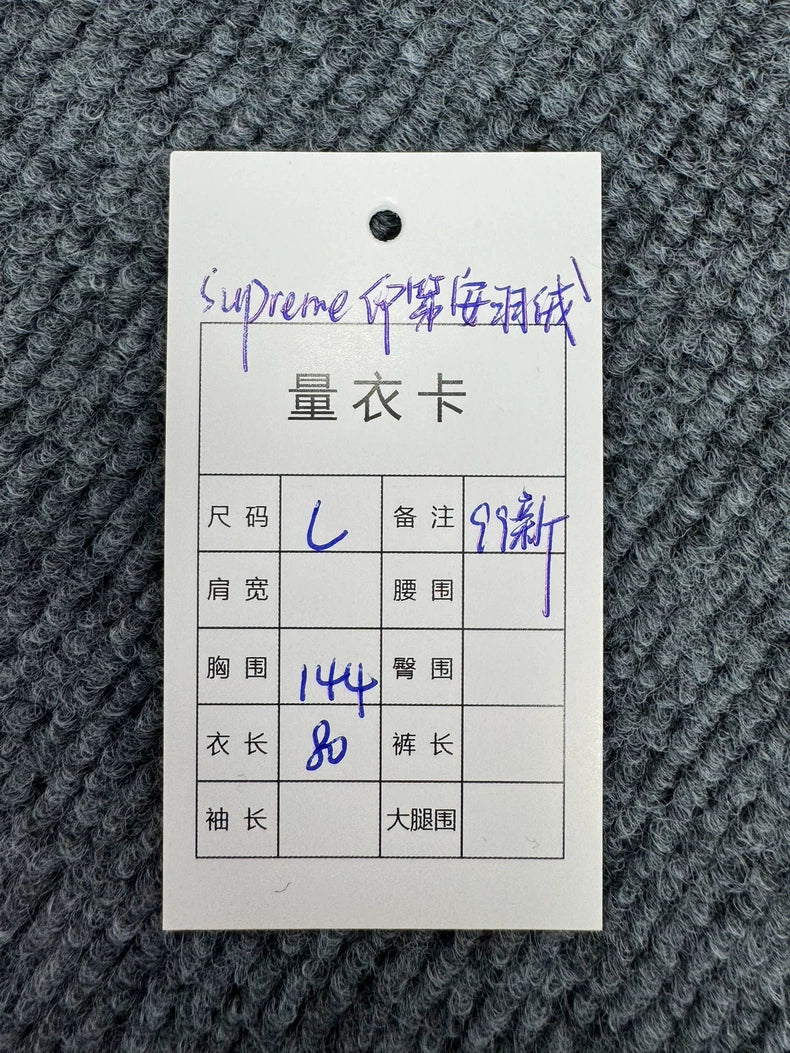 supreme 印第安羽绒
量衣卡
尺码 L 备注 99新
肩宽 腰围
胸围 144 臀围
衣长 80 裤长
袖长 大腿围